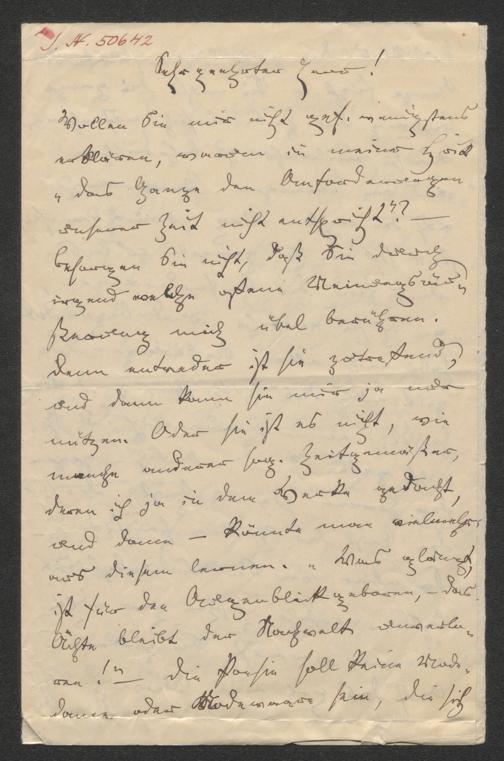 J. N. 50642
Sehr geehrter Herr!
Wollen Sie mir nicht gef. wenigstens
erklären, warum in meiner
"das Ganze den Anforderungen
unserer Zeit nicht entspricht"? —
Besorgen Sie nicht, daß Sie durch
irgend welche offene Meinungsäu-
ßerung mich übel berühren.
Denn entweder ist sie zutreffend,
und dann kann sie mir ja nur
nützen. Oder sie ist es nicht, wie
manche anderer sog. Zeitgemäßer,
deren ich ja in dem Werke gedacht,
und dann — könnte man vielmehr
aus diesem lernen. "Was glänzt,
ist für den Augenblick geboren, — das
Ächte bleibt der Nachwelt unverlo-
ren!" — Die Poesie soll keine Mode-
dame oder Modeware sein, die sich